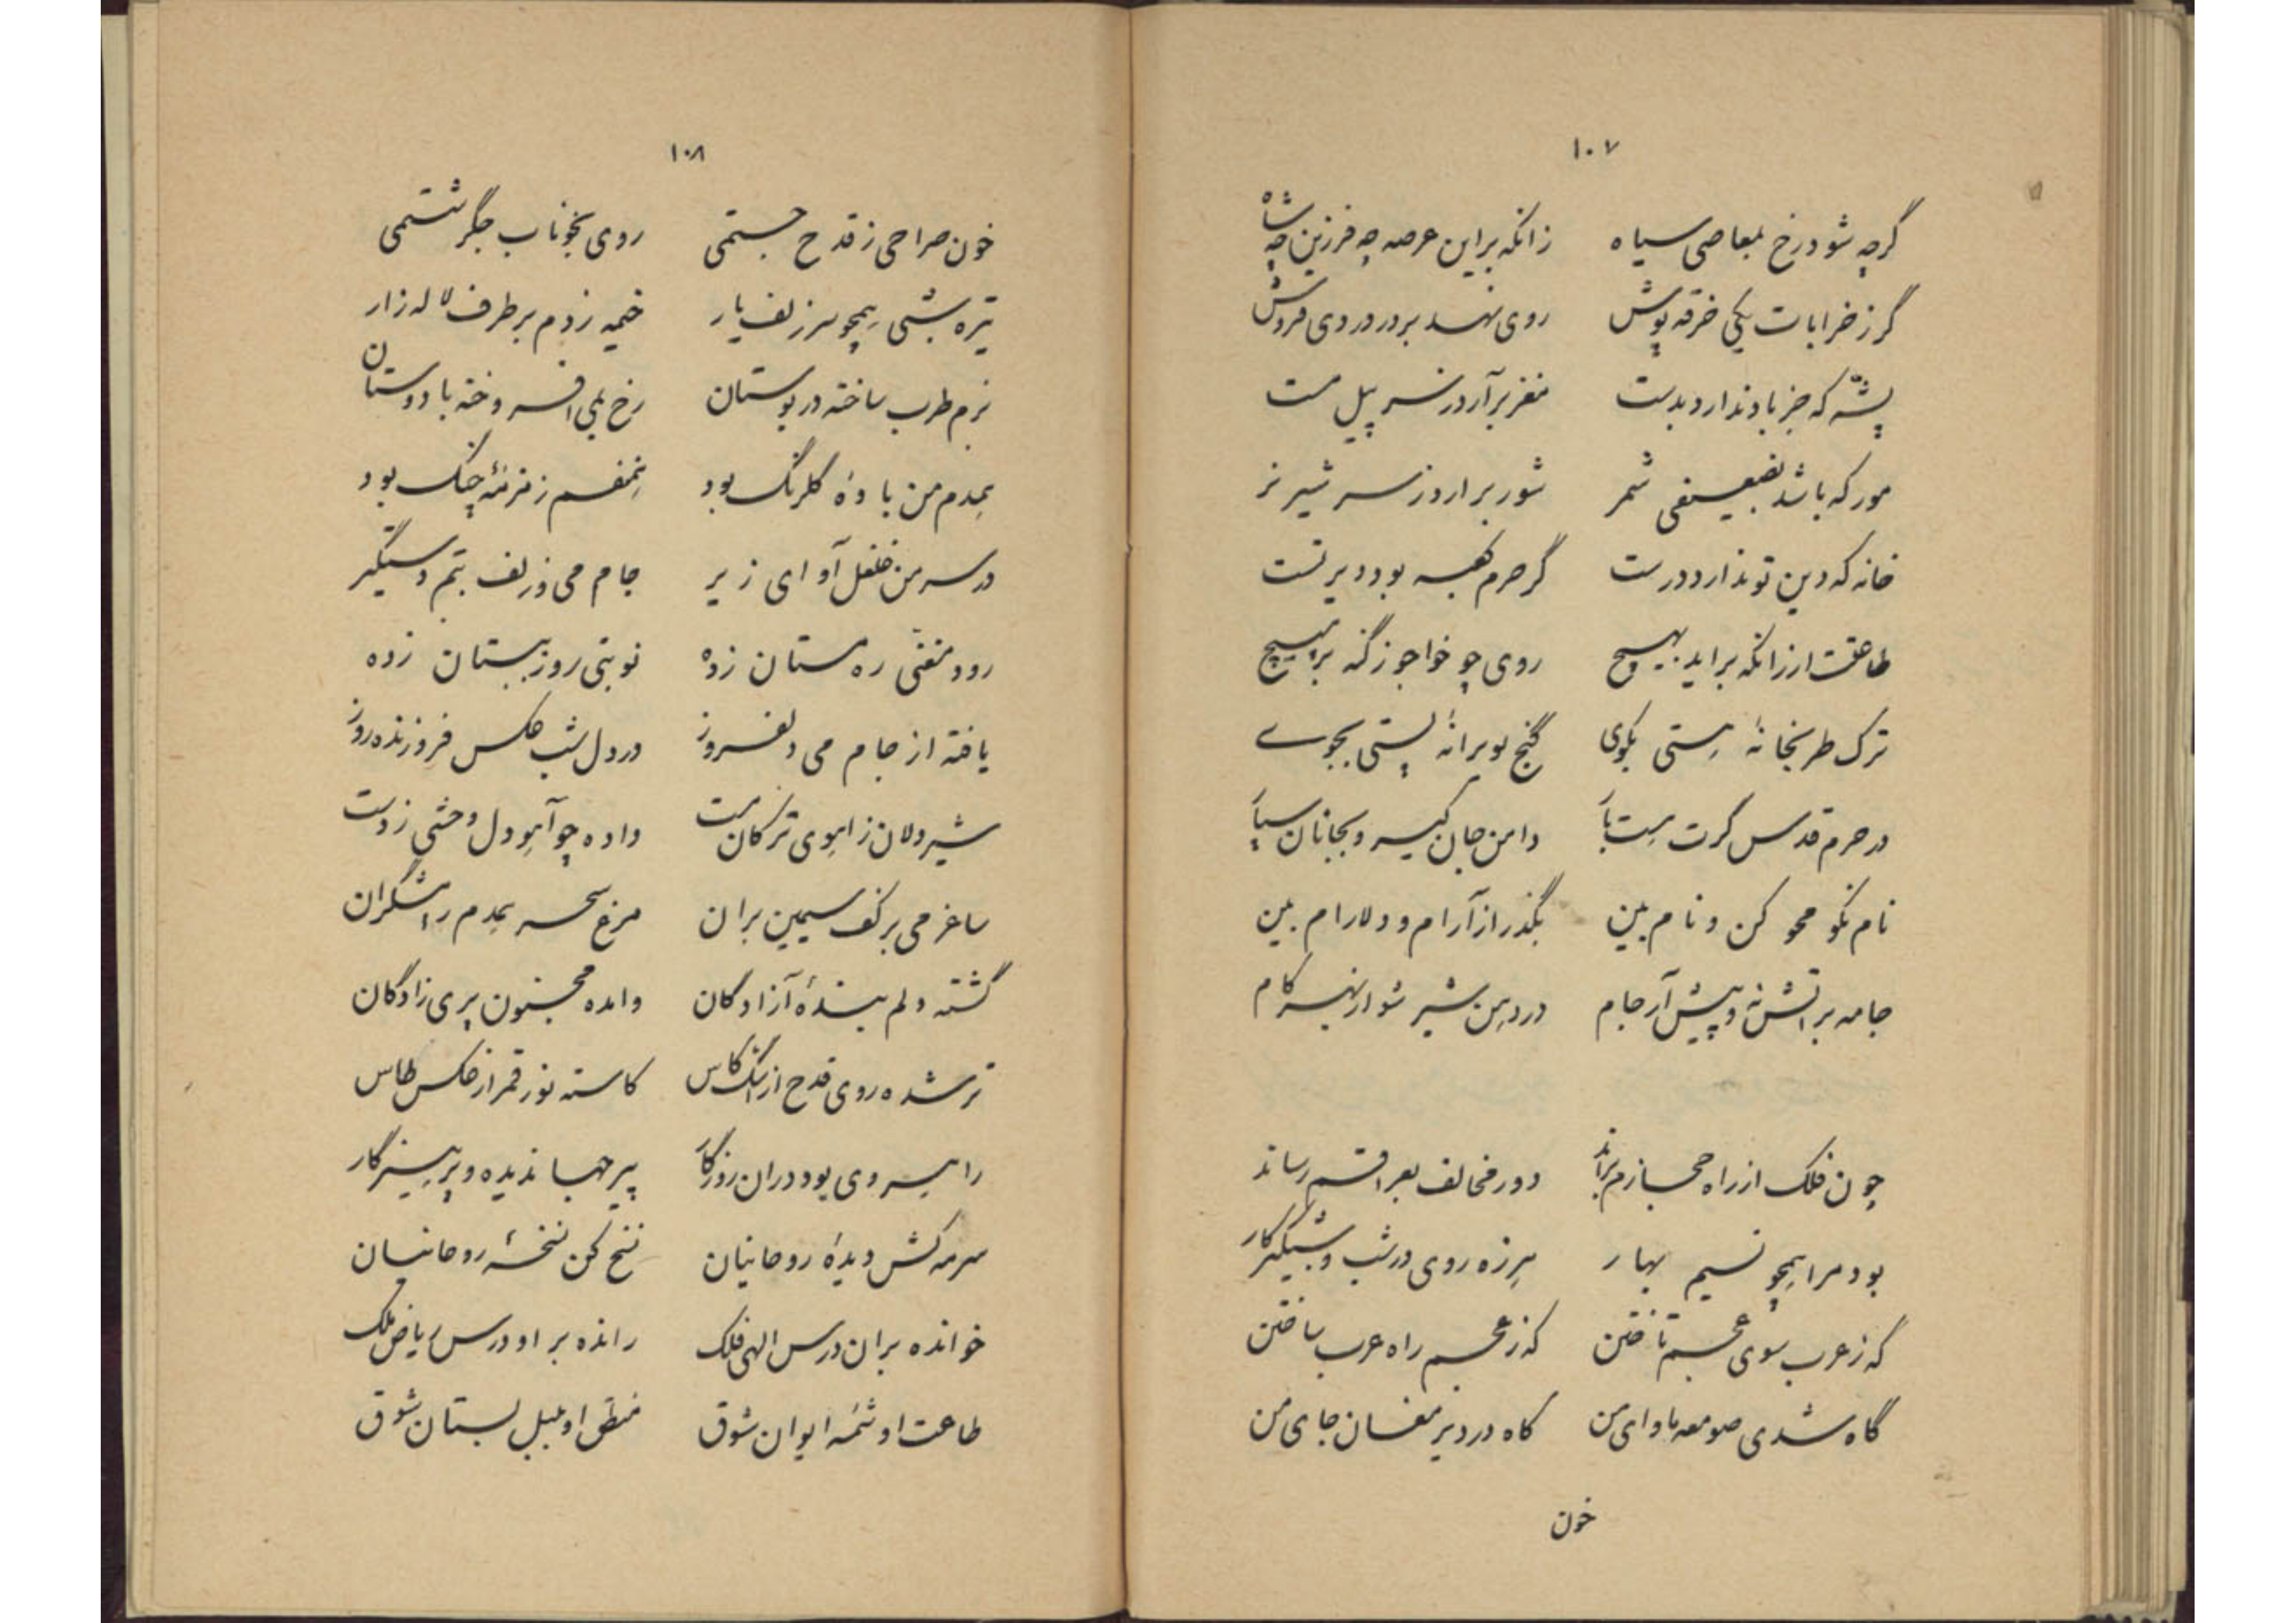 ۱۰۷
گرچه شود رخ بمعاصی سیاه زانکه براین عرصه چه فرزین چه شاه
گر ز خرابات یکی خرقه پوش روی نهد بر در دردی فروش
پشّه که جز باد ندارد بدست مغز برآرد ز سر پیل مست
مور که باشد بضعیفی شمر شور برارد ز سر شیر نر
خانه که دین تو ندارد درست گر حرم کعبه بود دیر تست
طاعتت ار زانکه براید بهیچ روی چو خواجو ز گنه بر مپیچ
ترک طربخانهٔ هستی بگوی گنج بویرانهٔ پستی بجوی
در حرم قدس گرت هست بار دامن جان گیر و بجانان سپار
نام نکو محو کن و نام بین بگذر از آرام و دلارام بین
جامه بر اتش نه و پیش آر جام در دهن شیر شو از بهر کام
چون فلک از راه حجازم براند دور مخالف بعراقم رساند
بود مرا همچو نسیم بهار هرزه روی در شب و شبگیر کار
که ز عرب سوی عجم تاختن که ز عجم راه عرب ساختن
گاه شدی صومعه ماوای من کاه در دیر مغان جای من
خون
۱۰۸
خون صراحی ز قدح جستمی روی بخوناب جگر شستمی
تیره شبی همچو سر زلف یار خیمه زدم بر طرف لاله زار
بزم طرب ساخته در بوستان رخ بمی افروخته با دوستان
همدم من بادهٔ کلرنگ بود هم‌نفسم زمزمهٔ چنگ بود
در سر من غلغل آوای زیر جام می و زلف بتم دستگیر
رود مغنّی ره مستان زده نوبتی روز ببستان زده
یافته از جام می دلفروز در دل شب عکس فروزنده روز
شیر دلان ز اهوی ترکان مست داده چو آهو دل وحشی ز دست
ساغر می بر کف سیمین بران مرغ سحر همدم رامشگران
گشته دلم بندهٔ آزادگان وامده مجنون پری زادگان
تر شده روی قدح از اشک کاس کاسته نور قمر از عکس طاس
راهروی بود دران روزگار پیر جهاندیده و پرهیزگار
سرمه کش دیدهٔ روحانیان نسخ کن نسخهٔ روحانیان
خوانده بران درس الهی فلک رانده بر او درس ریاض ملک
طاعت او شمهٔ ایوان شوق منطق او بلبل بستان شوق